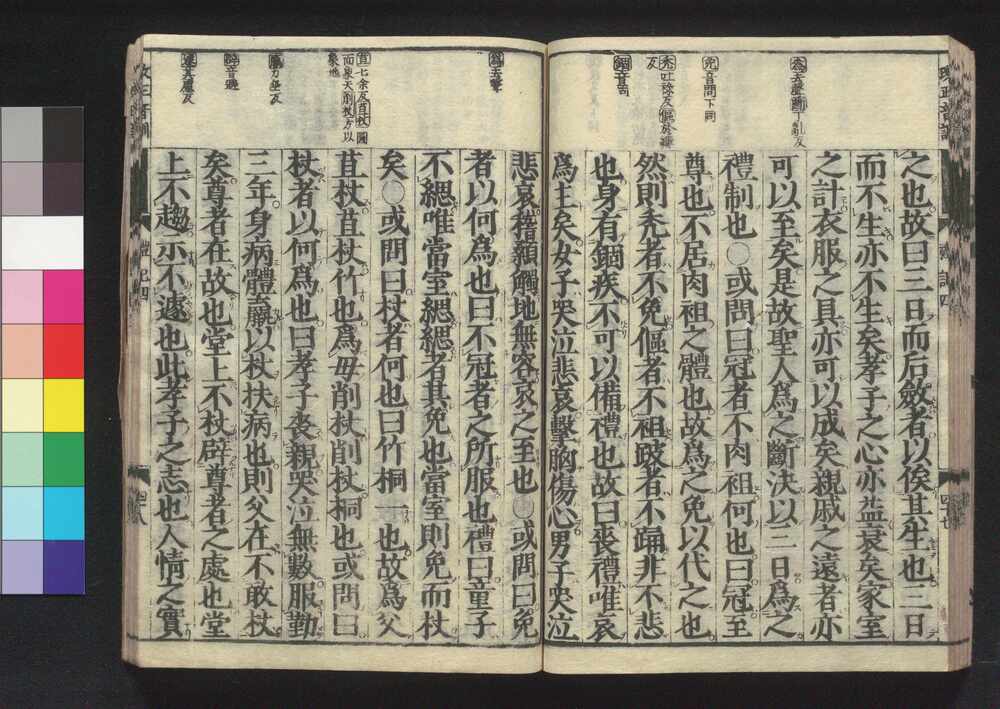 之也故曰三日而后斂者以俟其生也三日
而不生亦不生矣孝子之心亦益衰矣家室
之計衣服之具亦可以成矣親戚之遠者亦
可以至矣是故聖人爲之斷決以三日爲之
禮制也○或問曰冠者不肉袒何也曰冠至
尊也不居肉袒之體也故爲之免以代之也
然則禿者不免傴者不袒跛者不踊非不悲
也身有錮疾不可以備禮也故曰喪禮唯哀
爲主矣女子哭泣悲哀擊胸傷心男子哭泣
悲哀稽顙觸地無容哀之至也○或問曰免
者以何爲也曰不冠者之所服也禮曰童子
不緦唯當室緦緦者其免也當室則免而杖
矣○或問曰杖者何也曰竹桐一也故爲父
苴杖苴杖竹也爲母削杖削杖桐也或問曰
杖者以何爲也曰孝子喪親哭泣無數服勤
三年身病體羸以杖扶病也則父在不敢杖
矣尊者在故也堂上不杖辟尊者之處也堂
上不趨示不遽也此孝子之志也人情之實
爲去聲斷丁亂反
免音問下同
禿吐祿反傴於縷
反
錮音固
爲去聲
苴七余反苴杖圓
而象天削杖方以
象地
羸力垂反
辟音避
遽其慮反
禮記四